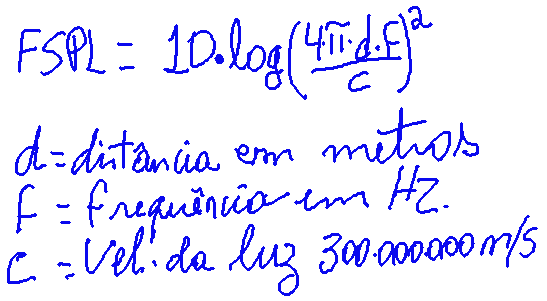 FSPL = 10·log(4·π·d·f/c)²
d = distância em metros
f = frequência em Hz.
c = Vel. da luz 300.000.000 m/s